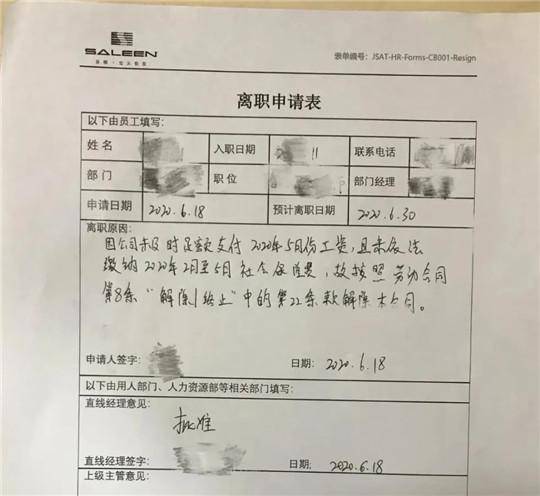 SALEEN
表单编号：JSAT-HR-Forms-CB001-Resign
离职申请表
以下由员工填写：
姓 名 入职日期 11 联系电话
部 门 职 位 部门经理
申请日期 2020.6.18 预计离职日期 2020.6.30
离职原因：
因公司未及时足额支付2020年5月份工资，且未依法
缴纳2020年2月至5月社会保险费，故按照劳动合同
第8条“解除/终止”中的第22条款解除本合同。
申请人签字： 日期： 2020.6.18
以下由用人部门、人力资源部等相关部门填写：
直线经理意见：
批准
直线经理签字： 日期: 2020.6.18
上级主管意见：